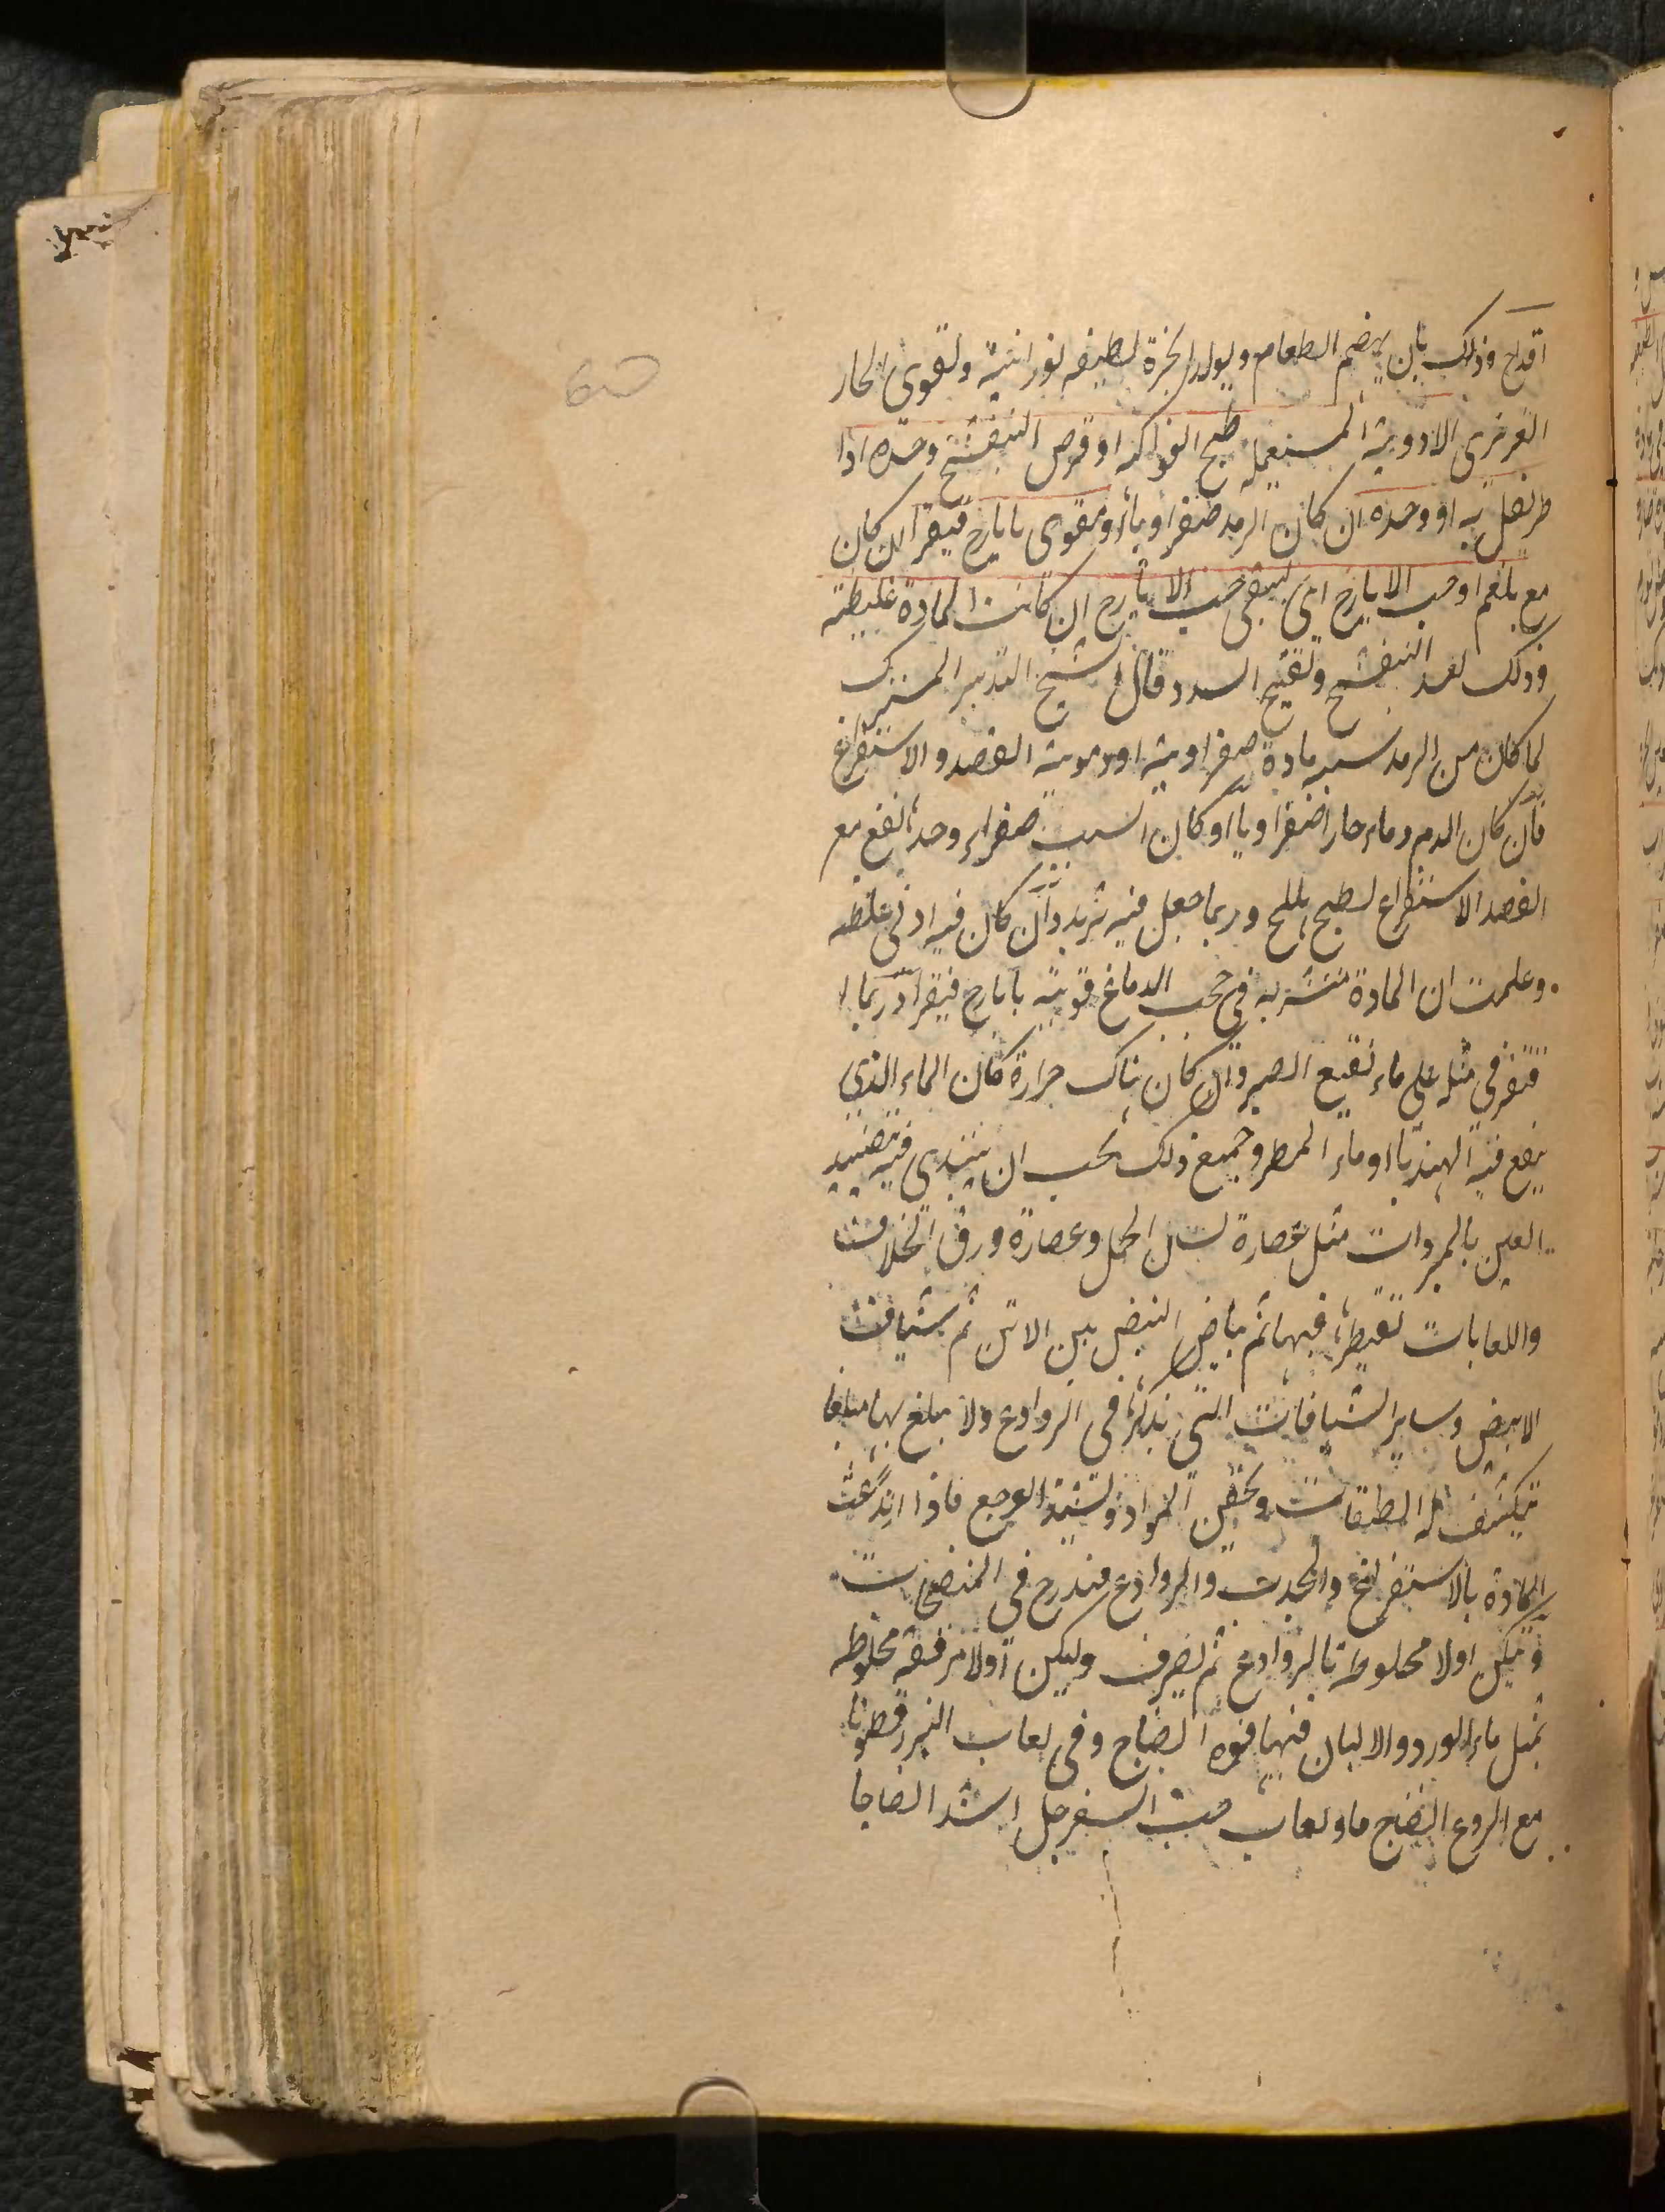 اقداح وذلك بان يهضم الطعام ويولد ابخرة لطيفه نورانية ولقوى الحار
الغريزى الادوية المستعمله طبيخ الفواكه او قرص البنفشج وحده اذا
طرنفل به او وحده ان كان الرمد صفراويا او مقوى بايارج فيقرا ان كان
مع بلغم او حب الايارج اى يسقى حب الايارج ان كانت المادة غليظة
وذلك بعد البنفشج وتفتيح السدد قال الشيخ التدبير المشترك
لما كان من الرمد سببه مادة صفراوية او دموية الفصد والاستفراغ
فان كان الدم دماء حارا صفراويا او كان السبب صفراء وحدها نفع مع
الفصد الاستفراغ بطبيخ الهليلج وربما جعل فيه تربد وان كان فيه ادنى غلظه
وعلمت ان المادة متشربه فى حجب الدماغ قويته بايارج فيقرا وربما ا
قتفر فى مثله على ماء نقيع الصبر وان كان هناك حرارة كان الماء الذى
ينقع فيه الهندبا او ماء المطر وجميع ذلك يجب ان يبتدى فيه بتضميد
العين بالمبردات مثل عصارة لسان الحمل وعصارة ورق الخلاف
واللعابات تقيطرها فيها ثم بياض البيض بلبن الاتن ثم شياف
الابيض وساير الشيافات التى نذكرها فى الروادع ولا يبلغ بها مبلغا
تيكثف له الطبقات ويحقن المواد ويشتد الوجع فاذا ارتدعت
المادة بالاستفراغ والجذب والروادع فتدرج فى المنضجات
وليكن اولا مخلوطة بالروادع ثم تصرف وليكن اولا مرققة مخلوطه
بمثل ماء الورد والالبان فيها قوة انضاج وفى لعاب البزرقطونا
مع الردع انضاج ما ولعاب حب السفرجل اشد انضاجا